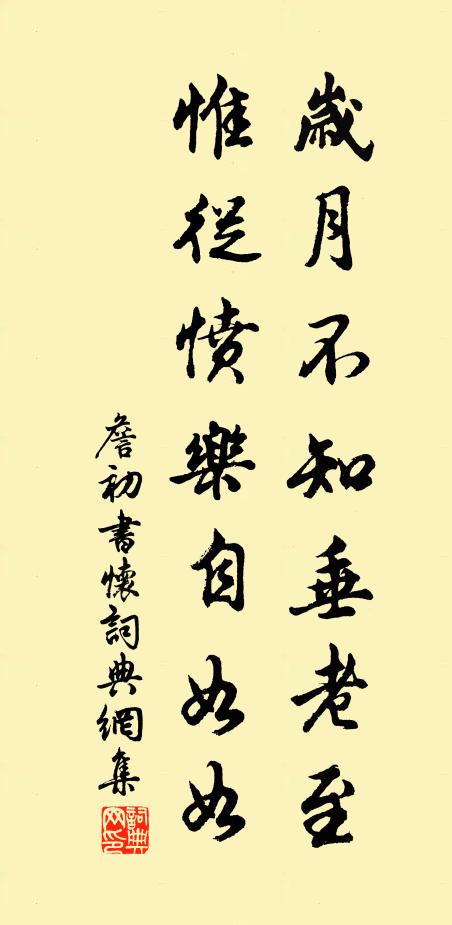 歲月不知垂老至
惟從憤樂自如如
詹初書懷詞典網集
詞典网印